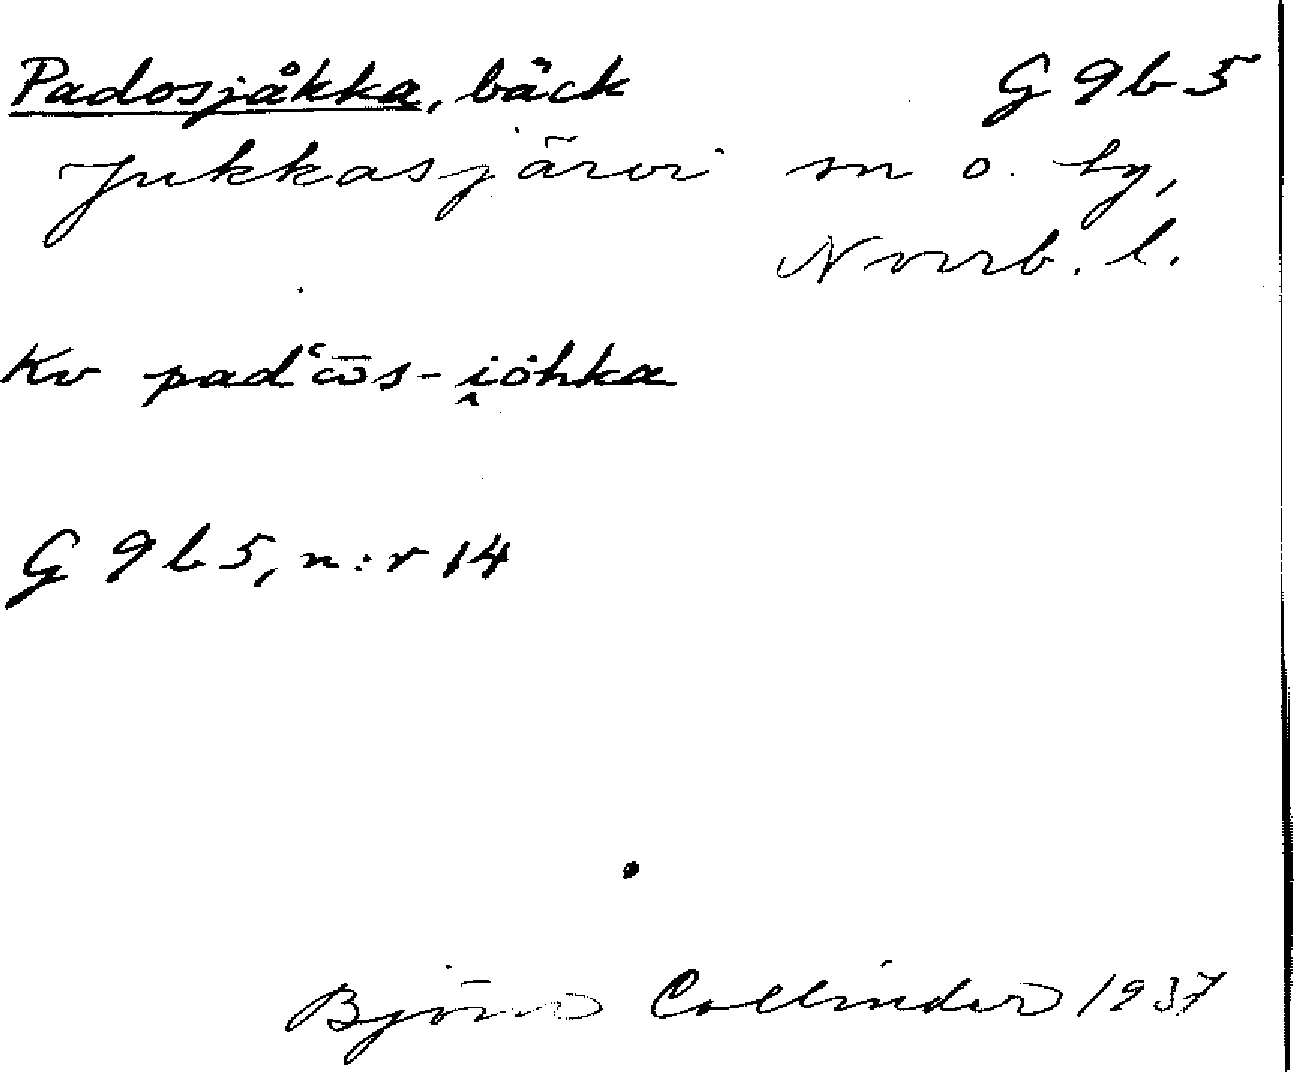 Padosjåkka, bäck G 9 b 5
Jukkasjärvi sn o. by,
Norrb. l.
Kv padʿω̄s-i̯ȯhka
G 9 b 5, n:r 14
Björn Collinder 1937